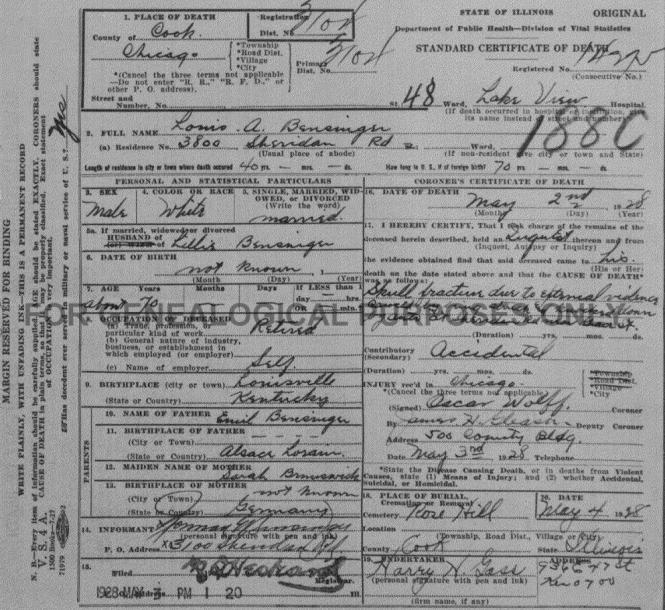 STATE OF ILLINOIS ORIGINAL
Department of Public Health—Division of Vital Statistics
STANDARD CERTIFICATE OF DEATH
Registered No.
(Consecutive No.)
1. PLACE OF DEATH
Registration
Dist. No.
County of Cook
Chicago
*Township
*Road Dist.
*Village
*City
Primary
Dist. No.
*(Cancel the three terms not applicable
—Do not enter "R. R.," "R. F. D.," or
other P. O. address).
Street and
Number, No. St. 48 Ward, Lake View Hospital.
(If death occurred in hospital or institution, give
its name instead of street and number)
1880
2. FULL NAME Louis A. Bensinger
(a) Residence No. 3800 Sheridan Rd Ward,
(Usual place of abode) (If non-resident give city or town and State)
Length of residence in city or town where death occurred 40 yrs. mos. ds. How long in U. S., if of foreign birth? 70 yrs. mos. ds.
PERSONAL AND STATISTICAL PARTICULARS
3. SEX 4. COLOR OR RACE 5. SINGLE, MARRIED, WIDOWED, OR DIVORCED
(Write the word)
Male White married
5a. If married, widowed or divorced
HUSBAND of Lillie Bensinger
6. DATE OF BIRTH
not known
(Month) (Day) (Year)
7. AGE Years Months Days If LESS than 1
day hrs.
OR min.
about 70
8. OCCUPATION OF DECEASED
(a) Trade, profession, or
particular kind of work Retired
(b) General nature of industry,
business, or establishment in
which employed (or employer)
(c) Name of employer Self
9. BIRTHPLACE (city or town) Louisville
(State or Country) Kentucky
PARENTS
10. NAME OF FATHER Emil Bensinger
11. BIRTHPLACE OF FATHER
(City or Town)
(State or Country) Alsace
12. MAIDEN NAME OF MOTHER Sarah Brunswick
13. BIRTHPLACE OF MOTHER
(City or Town) not known
(State or Country) Germany
14. INFORMANT
(personal signature with pen and ink)
P. O. Address 3100 Sheridan Rd
15.
Filed
Registrar.
1928 MAY 3 PM 1 20
CORONER'S CERTIFICATE OF DEATH
16. DATE OF DEATH
May 2nd 1928
(Month) (Day) (Year)
17. I HEREBY CERTIFY, That I took charge of the remains of the
deceased herein described, held an Inquest thereon and from
(Inquest, Autopsy or Inquiry)
the evidence obtained find that said deceased came to his
(His or Her)
death on the date stated above and that the CAUSE OF DEATH*
Skull fracture due to external violence
(Duration) yrs. mos. ds.
Contributory
(Secondary) Accidental
(Duration) yrs. mos. ds.
INJURY rec'd in Chicago
*Township
*Road Dist.
*Village
*City
*(Cancel the three terms not applicable)
(Signed) Oscar Wolff Coroner
By Deputy Coroner
Address 500 County Bldg.
Date May 3rd 1928 Telephone
*State the Disease Causing Death, or in deaths from Violent
Causes, state (1) Means of Injury; and (2) whether Accidental,
Suicidal, or Homicidal.
18. PLACE OF BURIAL,
Cremation or Removal
Cemetery Rose Hill
20. DATE
May 4 1928
Location
(Township, Road District, Village or City)
County Cook State Illinois
19. UNDERTAKER
Harry H.
(personal signature with pen and ink)
ADDRESS
(firm name, if any)
FOR GENEALOGICAL PURPOSES ONLY
MARGIN RESERVED FOR BINDING
WRITE PLAINLY, WITH UNFADING INK—THIS IS A PERMANENT RECORD
N. B.—Every item of information should be carefully supplied. AGE should be stated EXACTLY. CORONERS should state
CAUSE OF DEATH in plain terms, so that it may be properly classified. Exact statement
of OCCUPATION is very important.
V. S. 4A.